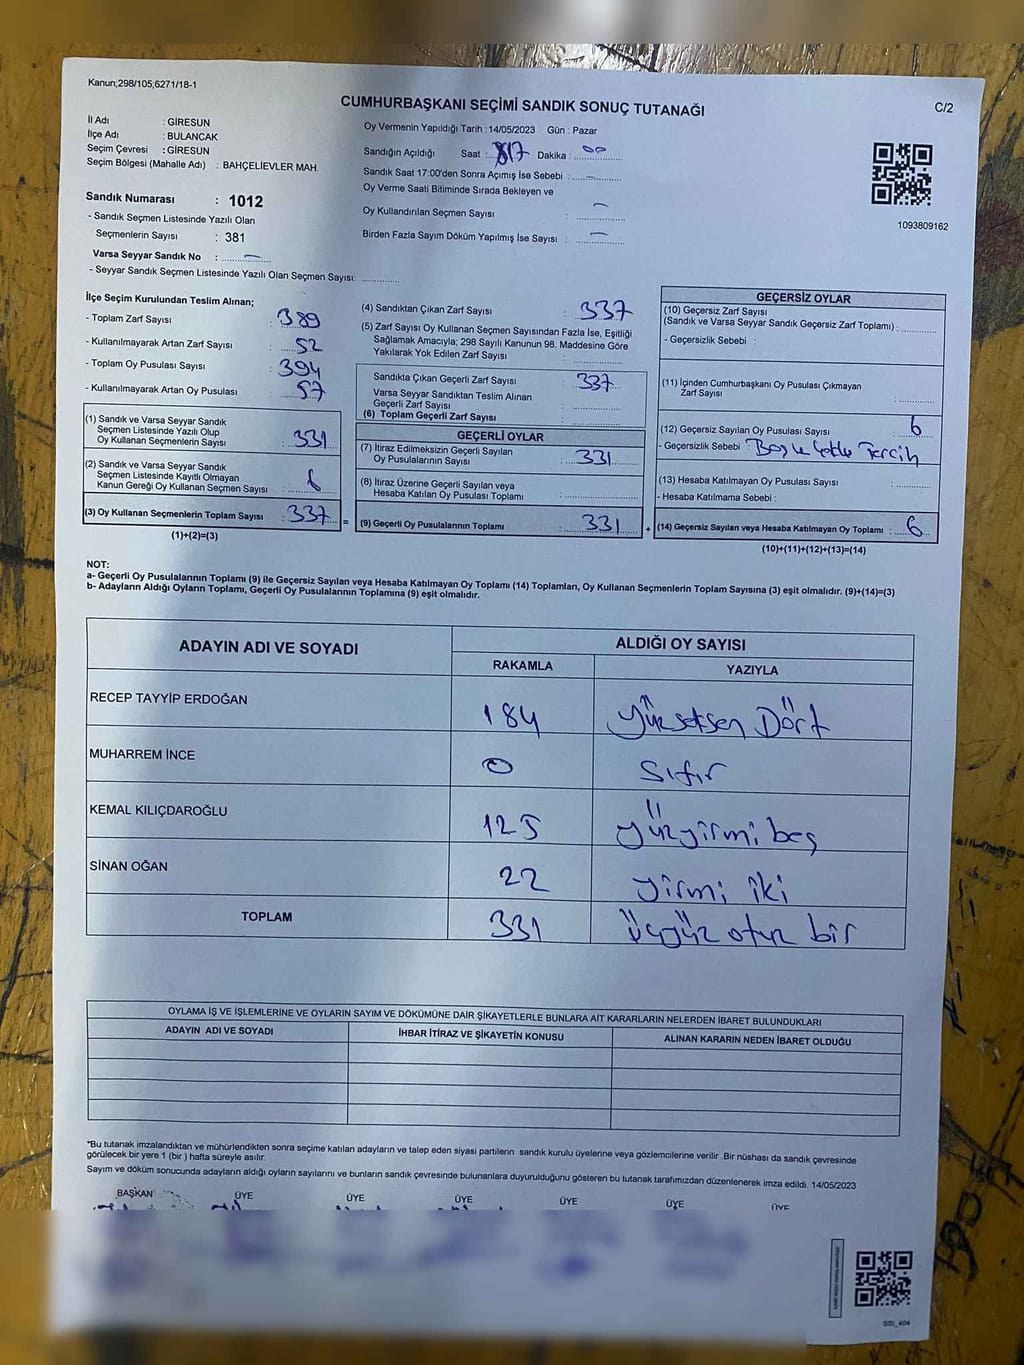 Kanun;298/105,6271/18-1
CUMHURBAŞKANI SEÇİMİ SANDIK SONUÇ TUTANAĞI
C/2
İl Adı : GİRESUN
İlçe Adı : BULANCAK
Seçim Çevresi : GİRESUN
Seçim Bölgesi (Mahalle Adı) : BAHÇELİEVLER MAH.
Oy Vermenin Yapıldığı Tarih : 14/05/2023 Gün : Pazar
Sandığın Açıldığı Saat : 17 Dakika : 00
Sandık Saat 17:00'den Sonra Açımış İse Sebebi : –
Oy Verme Saati Bitiminde Sırada Bekleyen ve
Oy Kullandırılan Seçmen Sayısı : –
Birden Fazla Sayım Döküm Yapılmış İse Sayısı : –
1093809162
Sandık Numarası : 1012
- Sandık Seçmen Listesinde Yazılı Olan
Seçmenlerin Sayısı : 381
Varsa Seyyar Sandık No : –
- Seyyar Sandık Seçmen Listesinde Yazılı Olan Seçmen Sayısı: ............
İlçe Seçim Kurulundan Teslim Alınan;
- Toplam Zarf Sayısı : 389
- Kullanılmayarak Artan Zarf Sayısı : 52
- Toplam Oy Pusulası Sayısı : 394
- Kullanılmayarak Artan Oy Pusulası : 57
(1) Sandık ve Varsa Seyyar Sandık
Seçmen Listesinde Yazılı Olup
Oy Kullanan Seçmenlerin Sayısı : 331
(2) Sandık ve Varsa Seyyar Sandık
Seçmen Listesinde Kayıtlı Olmayan
Kanun Gereği Oy Kullanan Seçmen Sayısı : 6
(3) Oy Kullanan Seçmenlerin Toplam Sayısı : 337
(1)+(2)=(3)
(4) Sandıktan Çıkan Zarf Sayısı : 337
(5) Zarf Sayısı Oy Kullanan Seçmen Sayısından Fazla İse, Eşitliği
Sağlamak Amacıyla; 298 Sayılı Kanunun 98. Maddesine Göre
Yakılarak Yok Edilen Zarf Sayısı : ............
Sandıkta Çıkan Geçerli Zarf Sayısı : 337
Varsa Seyyar Sandıktan Teslim Alınan
Geçerli Zarf Sayısı : ............
(6) Toplam Geçerli Zarf Sayısı : ............
GEÇERLİ OYLAR
(7) İtiraz Edilmeksizin Geçerli Sayılan
Oy Pusulalarının Sayısı : 331
(8) İtiraz Üzerine Geçerli Sayılan veya
Hesaba Katılan Oy Pusulası Toplamı : ............
= (9) Geçerli Oy Pusulalarının Toplamı : 331
GEÇERSİZ OYLAR
(10) Geçersiz Zarf Sayısı
(Sandık ve Varsa Seyyar Sandık Geçersiz Zarf Toplamı) : ............
- Geçersizlik Sebebi :
(11) İçinden Cumhurbaşkanı Oy Pusulası Çıkmayan
Zarf Sayısı : ............
(12) Geçersiz Sayılan Oy Pusulası Sayısı : 6
- Geçersizlik Sebebi : Boş Tercih
(13) Hesaba Katılmayan Oy Pusulası Sayısı : ............
- Hesaba Katılmama Sebebi :
+ (14) Geçersiz Sayılan veya Hesaba Katılmayan Oy Toplamı : 6
(10)+(11)+(12)+(13)=(14)
NOT:
a- Geçerli Oy Pusulalarının Toplamı (9) ile Geçersiz Sayılan veya Hesaba Katılmayan Oy Toplamı (14) Toplamları, Oy Kullanan Seçmenlerin Toplam Sayısına (3) eşit olmalıdır. (9)+(14)=(3)
b- Adayların Aldığı Oyların Toplamı, Geçerli Oy Pusulalarının Toplamına (9) eşit olmalıdır.
ADAYIN ADI VE SOYADI ALDIĞI OY SAYISI
RAKAMLA YAZIYLA
RECEP TAYYİP ERDOĞAN 184 Yüzseksen Dört
MUHARREM İNCE 0 Sıfır
KEMAL KILIÇDAROĞLU 125 yüzyirmi beş
SİNAN OĞAN 22 yirmi iki
TOPLAM 331 üçyüz otuz bir
OYLAMA İŞ VE İŞLEMLERİNE VE OYLARIN SAYIM VE DÖKÜMÜNE DAİR ŞİKAYETLERLE BUNLARA AİT KARARLARIN NELERDEN İBARET BULUNDUKLARI
ADAYIN ADI VE SOYADI İHBAR İTİRAZ VE ŞİKAYETİN KONUSU ALINAN KARARIN NEDEN İBARET OLDUĞU
*Bu tutanak imzalandıktan ve mühürlendikten sonra seçime katılan adayların ve talep eden siyasi partilerin sandık kurulu üyelerine veya gözlemcilerine verilir .Bir nüshası da sandık çevresinde
görülecek bir yere 1 (bir ) hafta süreyle asılır.
Sayım ve döküm sonucunda adayların aldığı oyların sayılarını ve bunların sandık çevresinde bulunanlara duyurulduğunu gösteren bu tutanak tarafımızdan düzenlenerek imza edildi. 14/05/2023
BAŞKAN ÜYE ÜYE ÜYE ÜYE ÜYE ÜYE
SSI_404